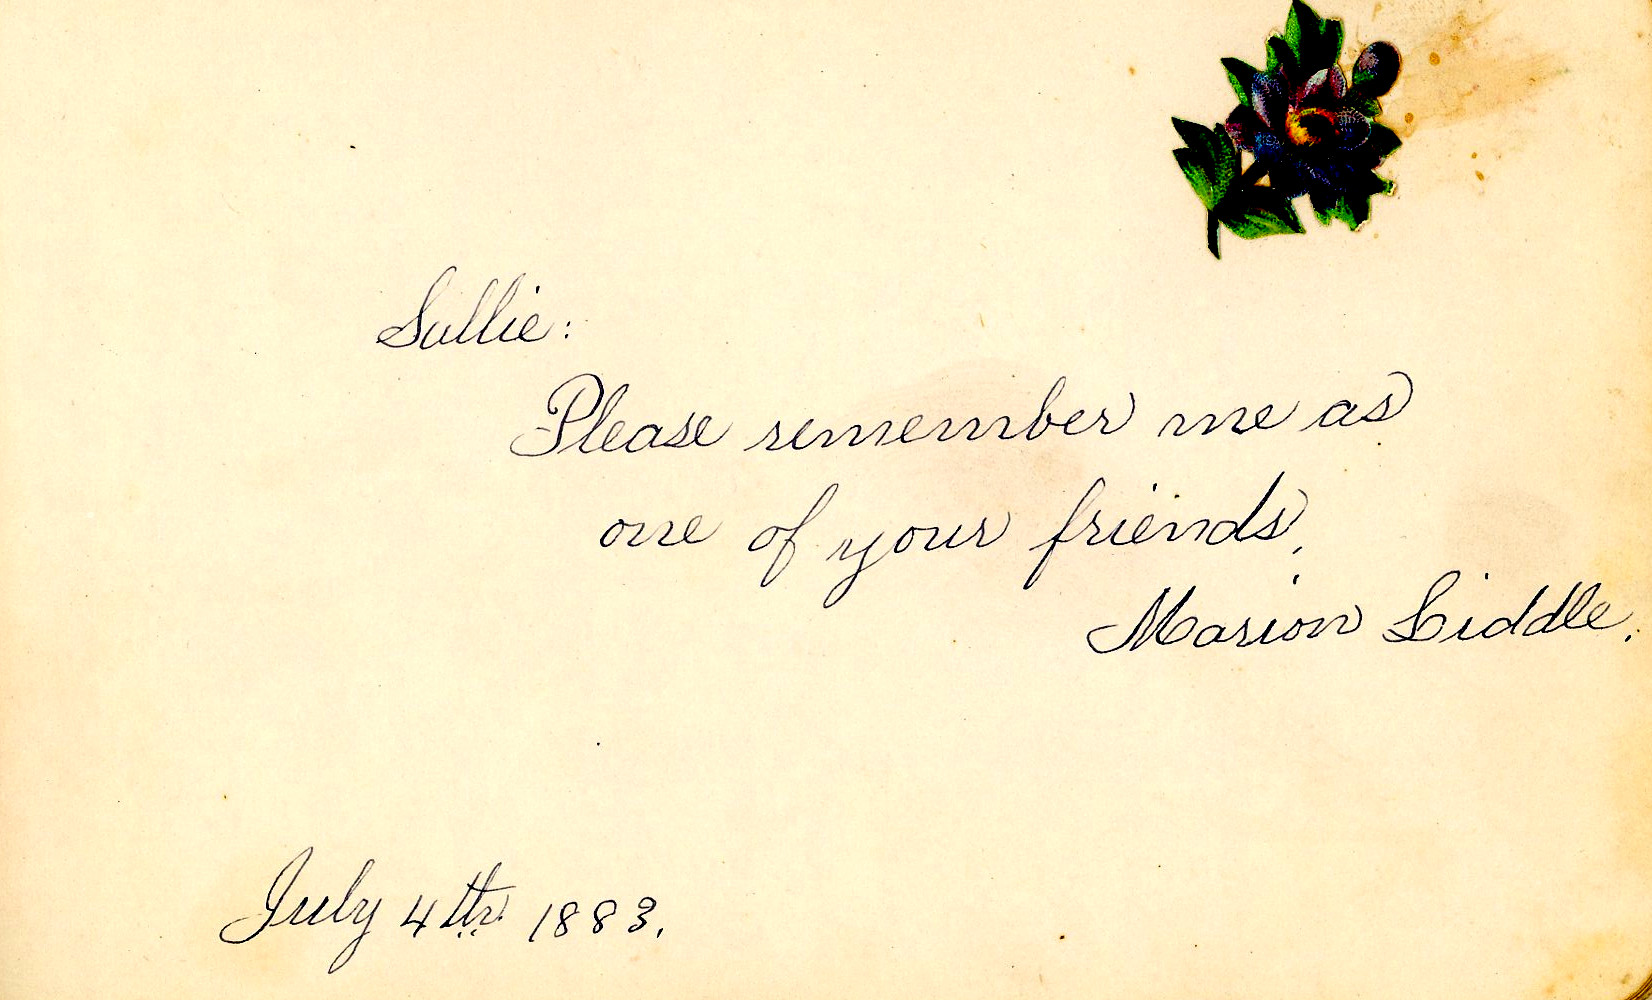 Sallie:
Please remember me as
one of your friends,
Marion Liddle.
July 4th 1883.